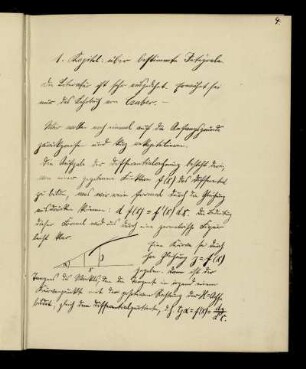 4.
1. Kapitel: über bestimmte Integrale
Die Literatur ist sehr ausgedehnt. Erwähnt sei
nur das Lehrbuch von Czuber. —
Wir wollen noch einmal auf die Anfangsgründe
zurückgreifen und kurz rekapitulieren.
Die Aufgabe der Differentialrechnung besteht darin,
von einer gegebenen Funktion f(x) das Differential
zu bilden, was wir eine Formel durch die Gleichung
ausdrücken können: d f(x) = f'(x) dx. Die Bedeutung
dieser Formel wird uns durch eine geometrische
leicht klar.
Eine Kurve sei durch
ihre Gleichung y = f(x)
gegeben. Dann ist der
Tangens des Winkels, den die Tangente in irgend einem
Kurvenpunkte mit der positiven Richtung der X-Achse
gleich dem Differentialquotienten, d.h. tg α = f'(x) = dy/dx.